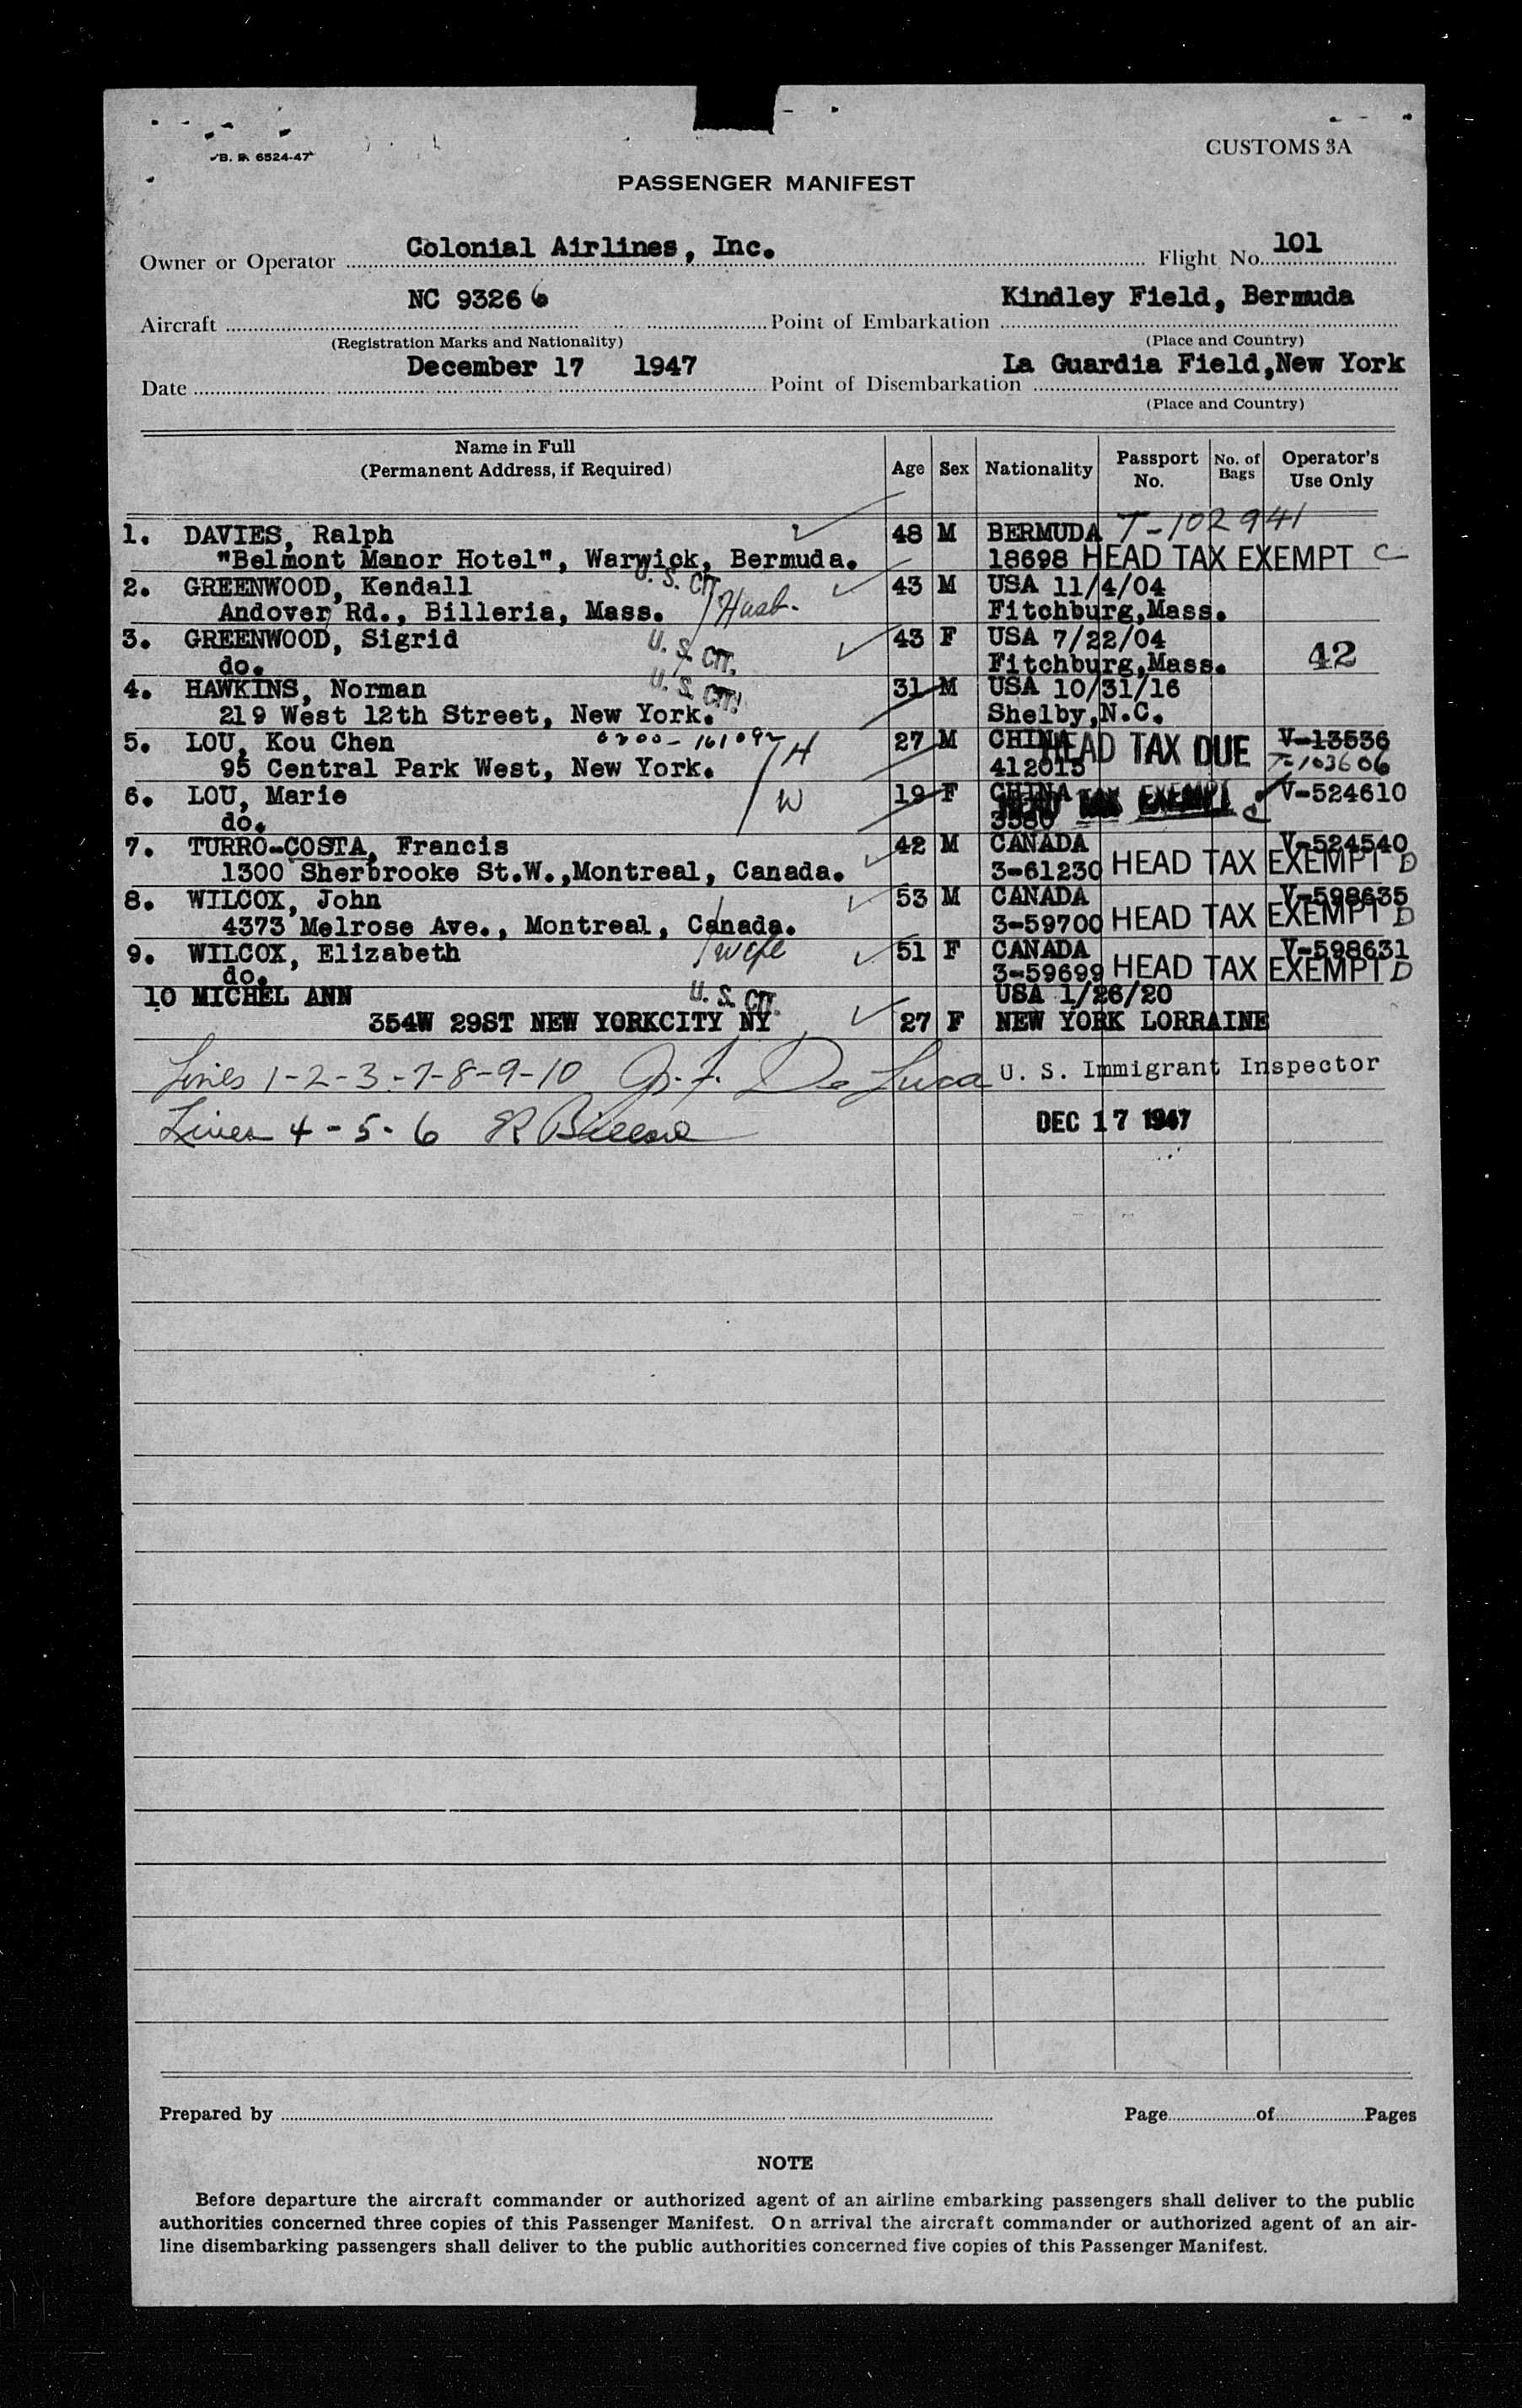 B. P. 6524-47
CUSTOMS 3A
PASSENGER MANIFEST
Owner or Operator Colonial Airlines, Inc. Flight No. 101
Aircraft NC 93266 Point of Embarkation Kindley Field, Bermuda
(Registration Marks and Nationality) (Place and Country)
Date December 17 1947 Point of Disembarkation La Guardia Field,New York
(Place and Country)
Name in Full
(Permanent Address, if Required) Age Sex Nationality Passport No. No. of Bags Operator's Use Only
1. DAVIES, Ralph 48 M BERMUDA T-102941
"Belmont Manor Hotel", Warwick, Bermuda. 18698 HEAD TAX EXEMPT C
2. GREENWOOD, Kendall U. S. CIT. 43 M USA 11/4/04
Andover Rd., Billeria, Mass. Husb. Fitchburg,Mass.
3. GREENWOOD, Sigrid U. S. CIT. 43 F USA 7/22/04
do. Fitchburg,Mass. 42
4. HAWKINS, Norman U. S. CIT. 31 M USA 10/31/16
219 West 12th Street, New York. Shelby,N.C.
5. LOU, Kou Chen 0300-161092 27 M CHINA HEAD TAX DUE V-13536
95 Central Park West, New York. H 412015 T-103606
6. LOU, Marie W 19 F CHINA HEAD TAX EXEMPT C V-524610
do. 3580
7. TURRO-COSTA, Francis 42 M CANADA V-524540
1300 Sherbrooke St.W.,Montreal, Canada. 3-61230 HEAD TAX EXEMPT D
8. WILCOX, John 53 M CANADA V-598635
4373 Melrose Ave., Montreal, Canada. 3-59700 HEAD TAX EXEMPT D
9. WILCOX, Elizabeth wife 51 F CANADA V-598631
do. 3-59699 HEAD TAX EXEMPT D
10 MICHEL ANN U. S. CIT. USA 1/26/20
354W 29ST NEW YORKCITY NY 27 F NEW YORK LORRAINE
Lines 1-2-3-7-8-9-10 De Luca U. S. Immigrant Inspector
Lines 4-5-6 DEC 17 1947
Prepared by Page of Pages
NOTE
Before departure the aircraft commander or authorized agent of an airline embarking passengers shall deliver to the public
authorities concerned three copies of this Passenger Manifest. On arrival the aircraft commander or authorized agent of an air-
line disembarking passengers shall deliver to the public authorities concerned five copies of this Passenger Manifest.